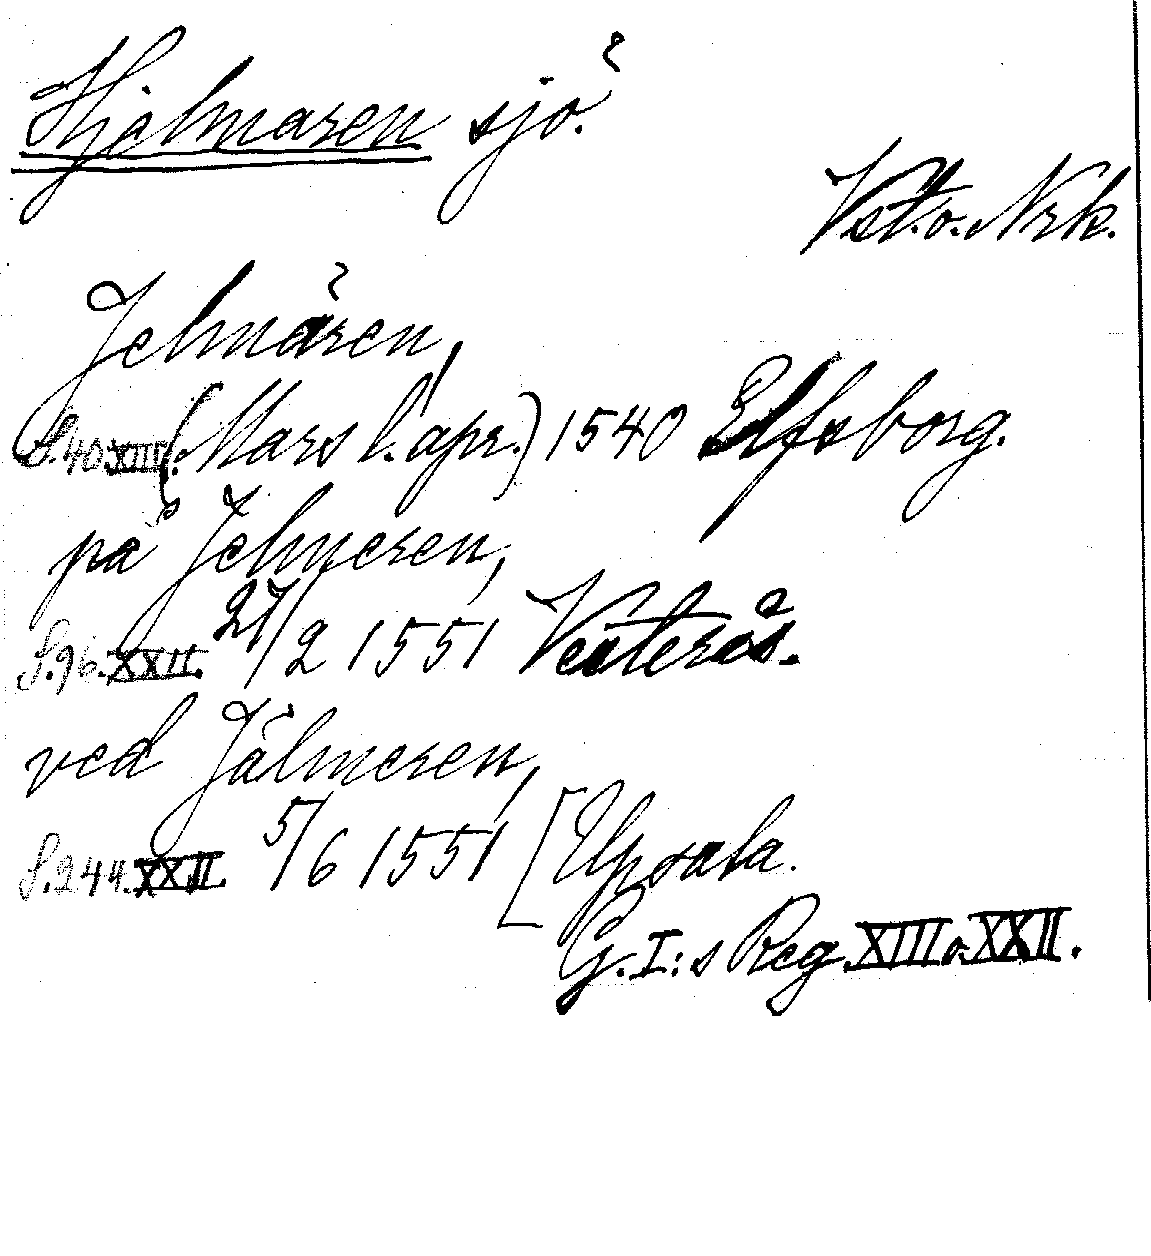 Hjälmaren sjö.
Vst. o. Nrk.
Jelmären,
S. 40. XIII. (Mars l. apr.) 1540 Elfsborg.
på Jelmeren,
S. 96. XXII. 27/2 1551 Vesterås.
ved Jälmeren,
S. 244. XXII. 5/6 1551 [Upsala.
G. I:s Reg. XIII o. XXII.